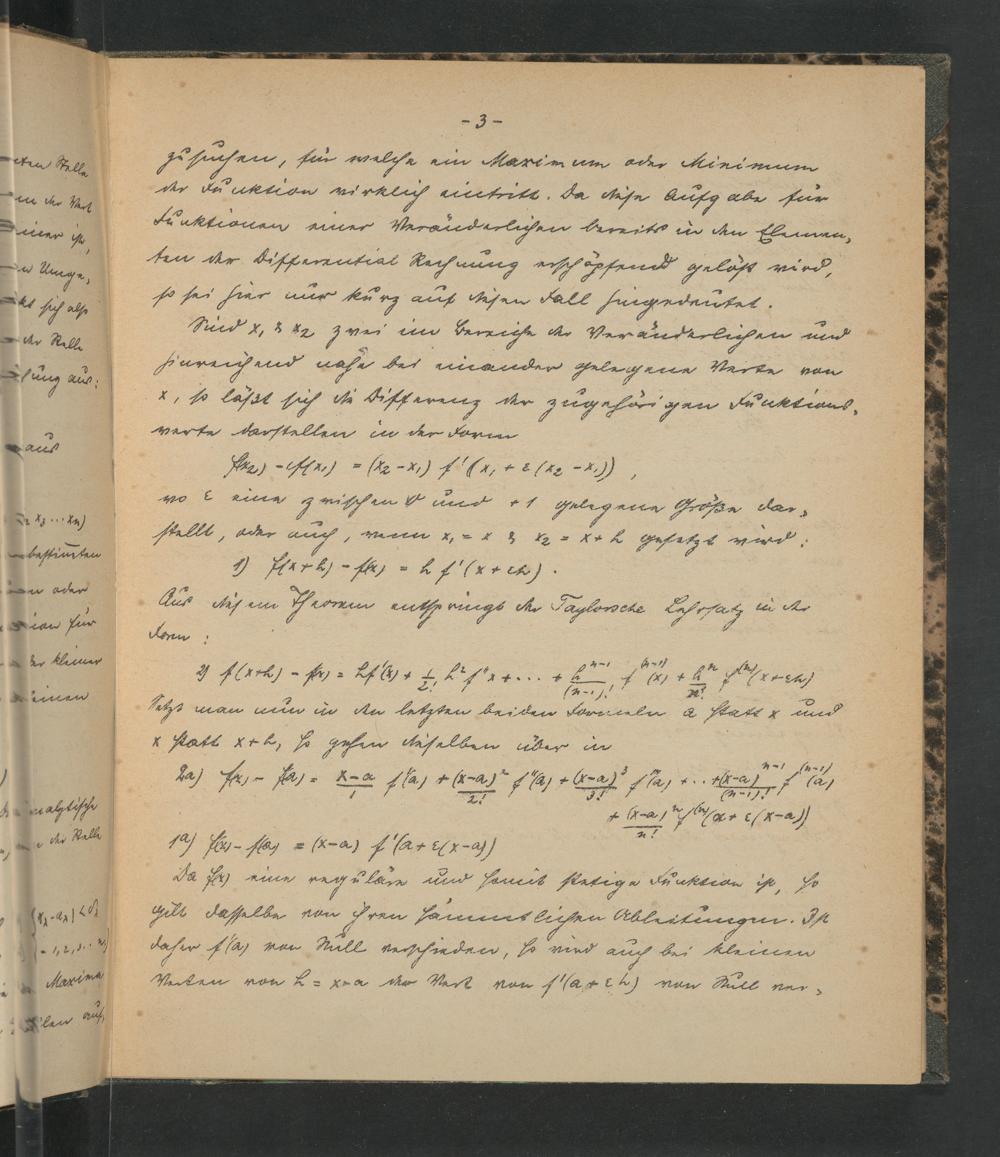 - 3 -
zu suchen, für welche ein Maximum oder Minimum
der Funktion wirklich eintritt. Da diese Aufgabe für
Funktionen einer Veränderlichen bereits in den Elemen-
ten der Differential Rechnung erschöpfend gelöst wird,
so sei hier nur kurz auf diesen Fall hingedeutet.
Sind x₁ & x₂ zwei im Bereiche der Veränderlichen und
hinreichend nahe bei einander gelegene Werte von
x, so läßt sich die Differenz der zugehörigen Funktions-
werte darstellen in der Form
f(x₂) - f(x₁) = (x₂ - x₁) f'(x₁ + ε(x₂ - x₁)) ,
wo ε eine zwischen 0 und +1 gelegene Größe dar-
stellt, oder auch, wenn x₁ = x & x₂ = x + h gesetzt wird:
1) f(x+h) - f(x) = h f'(x + εh) .
Aus diesem Theorem entspringt der Taylorsche Lehrsatz in der
Form :
2) f(x+h) - f(x) = h f'(x) + 1/2! h² f''x + ... + h^(n-1)/(n-1)! f^(n-1)(x) + h^n/n! f^(n)(x+εh)
Setzt man nun in den letzten beiden Formeln a statt x und
x statt x+h, so gehen dieselben über in
2a) f(x) - f(a) = (x-a)/1 f'(a) + (x-a)²/2! f''(a) + (x-a)³/3! f'''(a) + ... + (x-a)^(n-1)/(n-1)! f^(n-1)(a)
+ (x-a)^n/n! f^(n)(a + ε(x-a))
1a) f(x) - f(a) = (x-a) f'(a + ε(x-a))
Da f(x) eine reguläre und somit stetige Funktion ist, so
gilt dasselbe von ihren sämmtlichen Ableitungen. Ist
daher f'(a) von Null verschieden, so wird auch bei kleinen
Werten von h = x-a der Wert von f'(a + εh) von Null ver-